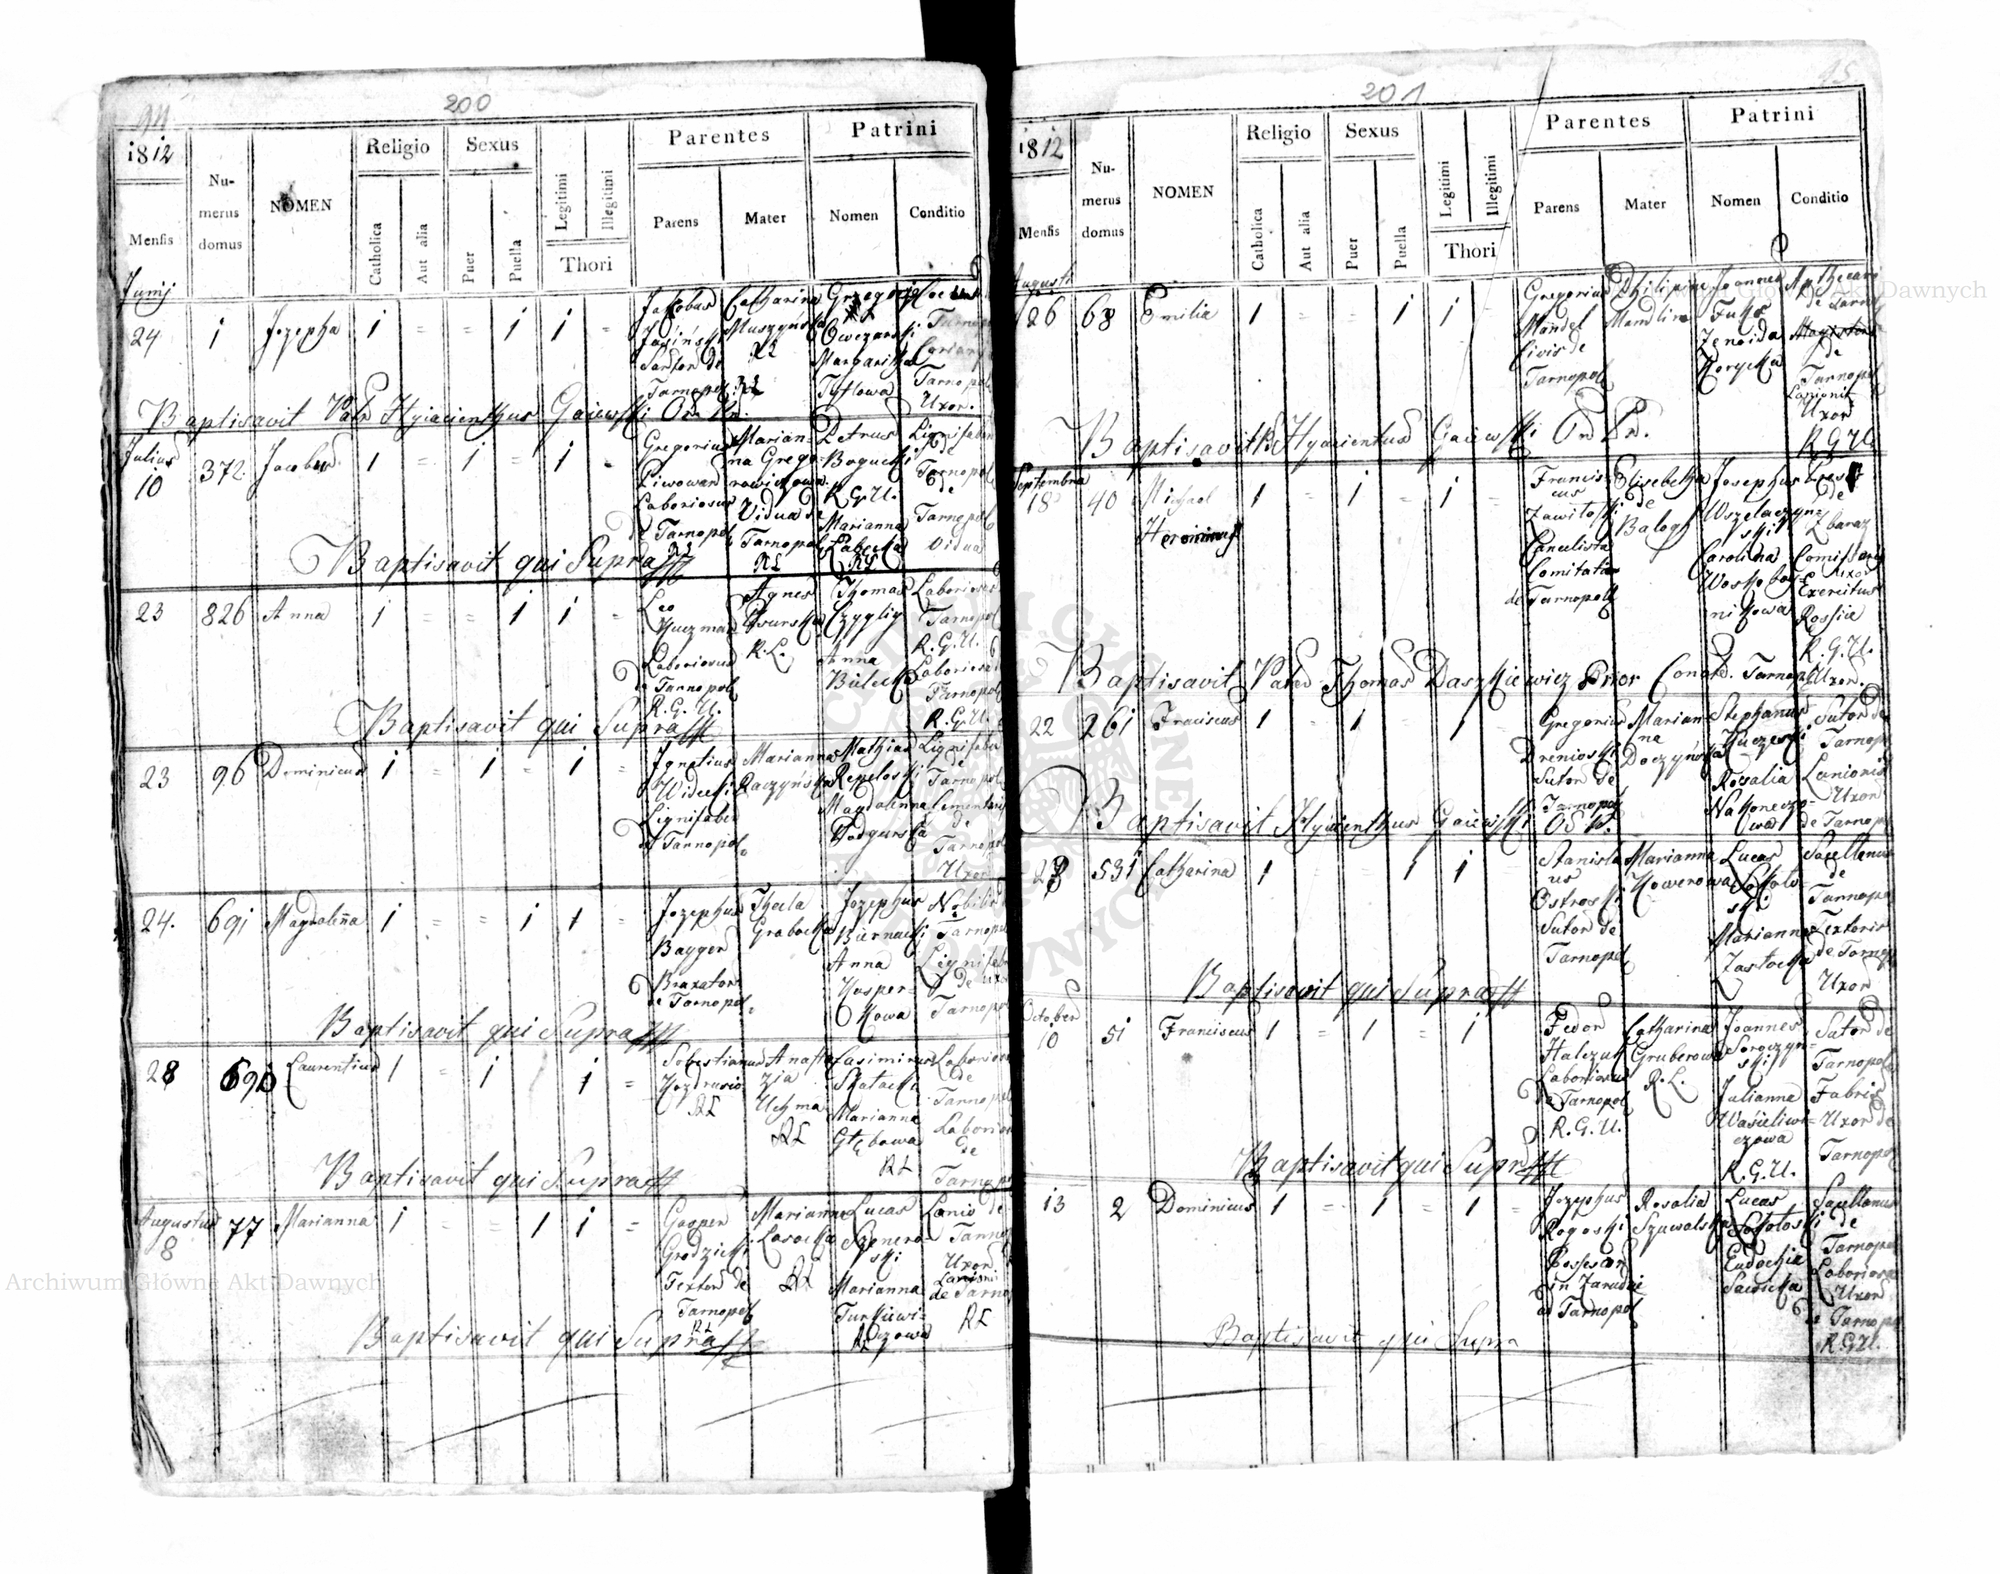 94
200
1812
Mensis
Numerus domus
NOMEN
Religio
Catholica
Aut alia
Sexus
Puer
Puella
Legitimi
Illegitimi
Thori
Parentes
Parens
Mater
Patrini
Nomen
Conditio
Junij
24 1 Jozepha 1 = = 1 1 =
Jakobus
Jasiński
Sartor de
Tarnopol RL
Catharina
Muszyńska
RL
Grzegorz
Owczarski
Margaritha
Tyflowa
Tarnopol
Uxor.
Baptisavit Patr Hyiacinthus Gaiewski Or. Pr.
Julius
10 372 Jacobus 1 = 1 = 1
Gregorius
Piwowar
Laboriosus
de Tarnopol
RL
Marian-
na Grego-
rowiczowa
Vidua de
Tarnopol
RL
Petrus
Bogucki
R.G.U.
Marianna
Zabecka
RL
Lignifaber
de
Tarnopol
de
Tarnopol
Vidua
Baptisavit qui Supra
23 826 Anna 1 = = 1 1 =
Leo
Kuczma
Laboriosus
de Tarnopol
R.G.U.
Agnes
R.L.
Thomas
Czygliy
Anna
Bielecka
Laboriosus
Tarnopol
R.G.U.
Laboriosa
Tarnopol
R.G.U.
Baptisavit qui Supra
23 96 Dominicus 1 = 1 = 1 =
Ignatius
Widecki
Lignifaber
de Tarnopol.
Marianna
Raczyńska
Mathias
Repeloski
Magdalenna
Podgurska
Lignifaber
de
Tarnopol
de
Tarnopol
Uxor
24. 691 Magdalena 1 = = 1 1 =
Jozephus
Bayger
Braxator
de Tarnopol.
Thecla
Grabocka
Jozephus
Biernacki
Anna
Kasper-
kowa
Nobilis
Tarnopol
Lignifabri
de uxor
Tarnopol
Baptisavit qui Supra
28 690 Laurentius 1 = 1 1 =
Sebestianus
RL
Anasta
zia
Uchma
RL
Casimirus
Skalacki
Marianna
Głębowa
RL
Laboriosus
de
Tarnopol
Laboriosa
de
Tarnopol
Baptisavit qui Supra
Augustus
8 77 Marianna 1 = = 1 1 =
Gasper
Grodzicki
Textor de
Tarnopol
RL
Marianna
Lasocka
RL
Lucas
Szenero-
wski
Marianna
Turkiewi-
czowa
RL
Lanio de
Tarnopol
Uxor
Lanionis
de Tarno
RL
Baptisavit qui Supra
95
201
1812
Mensis
Numerus domus
NOMEN
Religio
Catholica
Aut alia
Sexus
Puer
Puella
Legitimi
Illegitimi
Thori
Parentes
Parens
Mater
Patrini
Nomen
Conditio
Augusti
26 68 Emilia 1 = = 1 1 =
Gregorius
Mandel
Civis de
Tarnopol
Philipina
Mandlin
Joannes
Fuks
Zenaida
Korycka
de
Tarnopol
Lanionis
Uxor
R.G.U.
Baptisavit Hyacientus Gaiewski Or Pr.
Septembris
18 40 Michael
Heronimus 1 = 1 = 1 =
Francis-
cus
Zawiłoski
Cancelista
Comitatus
de Tarnopoll
Elisebetha
de
Balogh
Josephus
Wszelaczyn-
ski
Carolina
Woskoboy-
nikowa
de
Zbaraz
Comissarij
Uxor
Exercitus
Rossia
R.G.U.
Uxor.
Baptisavit Pater Thomas Daszkiewicz Prior Convtd. Tarnopl
22 261 Franciscus 1 = 1 = 1 =
Gregorius
Drenioski
Sutor de
Tarnopol
Marian-
na
Doczyńska
Stephanus
Kuczeski
Rosalia
Nakonecz-
owa
Sutor de
Tarnopol
Lanionis
Uxor
de Tarnop
Baptisavit Hyacienthus Gaiewski Od P.
28 531 Catharina 1 1 1
Stanisla
us
Ostroski
Sutor de
Tarnopol
Marianna
Kowerowa
Lucas
Sokolo-
ski
Marianna
Zastocka
Sacellanus
de
Tarnopol
Textoris
de Tarnop
Uxor
Baptisavit qui Supra
October
10 51 Franciscus 1 = 1 = 1
Fedor
Halczuk
Laboriosus
de Tarnopol
R.G.U.
Catharina
Gruberowa
R.L.
Joannes
Soroczyn-
ski
Julianna
Wasieliwi-
czowa
R.G.U.
Sutor de
Tarnopol
Fabris
Uxor de
Tarnopol
Baptisavit qui Supra
13 2 Dominicus 1 = 1 = 1 =
Jozephus
Rogoski
Possesor
in Zarudzie
ad Tarnopol
Rosalia
Szuwalska
Lucas
Sokoloski
Eudochia
Sawicka
Sacellanus
de
Tarnopol
Laboriosa
Uxor
de Tarnop
R.G.U.
Baptisavit qui Supra
Archiwum Główne Akt Dawnych
Archiwum Główne Akt Dawnych
ARCHIWUM GŁÓWNE AKT DAWNYCH